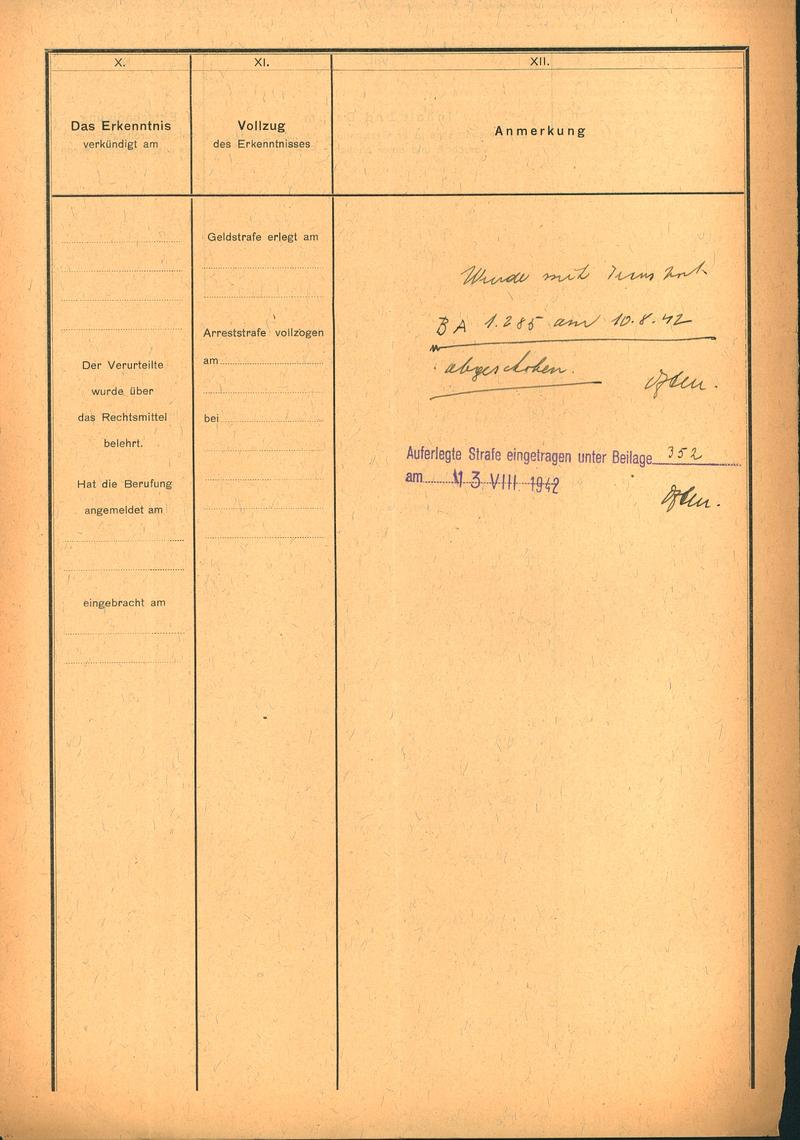 X.
Das Erkenntnis
verkündigt am
Der Verurteilte
wurde über
das Rechtsmittel
belehrt.
Hat die Berufung
angemeldet am
eingebracht am
XI.
Vollzug
des Erkenntnisses
Geldstrafe erlegt am
Arreststrafe vollzogen
am
bei
XII.
Anmerkung
Wurde mit Transport
BA 1.285 am 10.8.42
abgeschoben.
Auferlegte Strafe eingetragen unter Beilage 352
am 13 VIII 1942